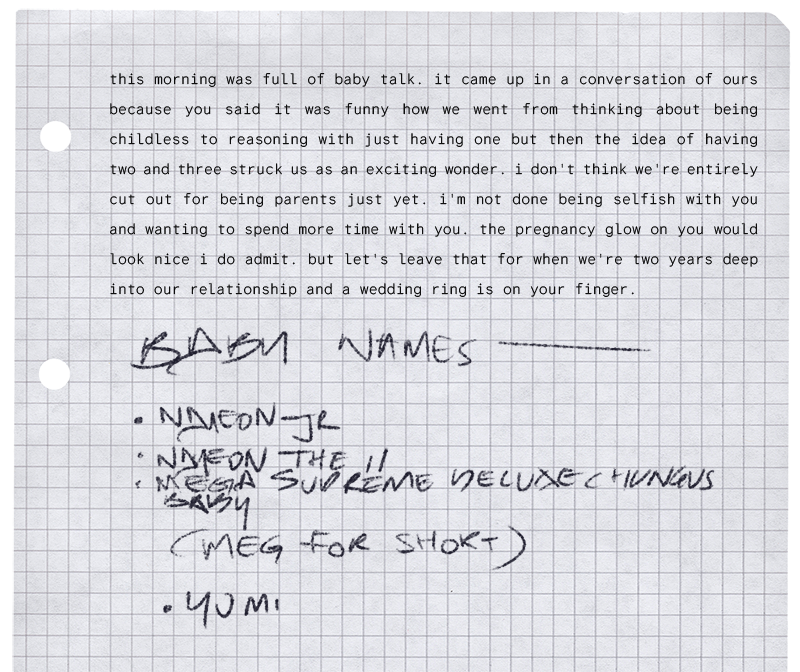 this morning was full of baby talk. it came up in a conversation of ours
because you said it was funny how we went from thinking about being
childless to reasoning with just having one but then the idea of having
two and three struck us as an exciting wonder. i don't think we're entirely
cut out for being parents just yet. i'm not done being selfish with you
and wanting to spend more time with you. the pregnancy glow on you would
look nice i do admit. but let's leave that for when we're two years deep
into our relationship and a wedding ring is on your finger.
BABY NAMES
• NAMEON-JR
• NAMEON THE II
• MEGA SUPREME DELUXE CHUNGUS
BABY
(MEG FOR SHORT)
• YUMI